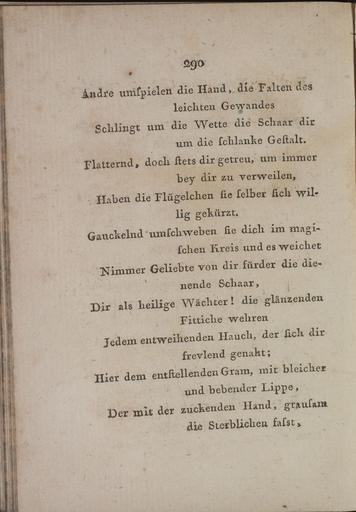 290
Andre umſpielen die Hand, die Falten des
leichten Gewandes
Schlingt um die Wette die Schaar dir
um die ſchlanke Geſtalt.
Flatternd, doch ſtets dir getreu, um immer
bey dir zu verweilen,
Haben die Flügelchen ſie ſelber ſich wil-
lig gekürzt.
Gauckelnd umſchweben ſie dich im magi-
ſchen Kreis und es weichet
Nimmer Geliebte von dir fürder die die-
nende Schaar,
Dir als heilige Wächter! die glänzenden
Fittiche wehren
Jedem entweihenden Hauch, der ſich dir
frevlend genaht;
Hier dem entſtellenden Gram, mit bleicher
und bebender Lippe,
Der mit der zuckenden Hand, grauſam
die Sterblichen faſst,